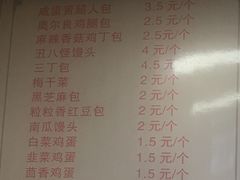 咸蛋黄腿人包 3.5元/个
奥尔良鸡腿包 2.5元/个
麻辣香菇鸡丁包 2.5元/个
丑八怪馒头 4元/个
三丁包 4.5元/个
梅干菜 2元/个
黑芝麻包 2元/个
粒粒香红豆包 2元/个
南瓜馒头 2元/个
白菜鸡蛋 1.5元/个
韭菜鸡蛋 1.5元/个
茴香鸡蛋 1.5元/个